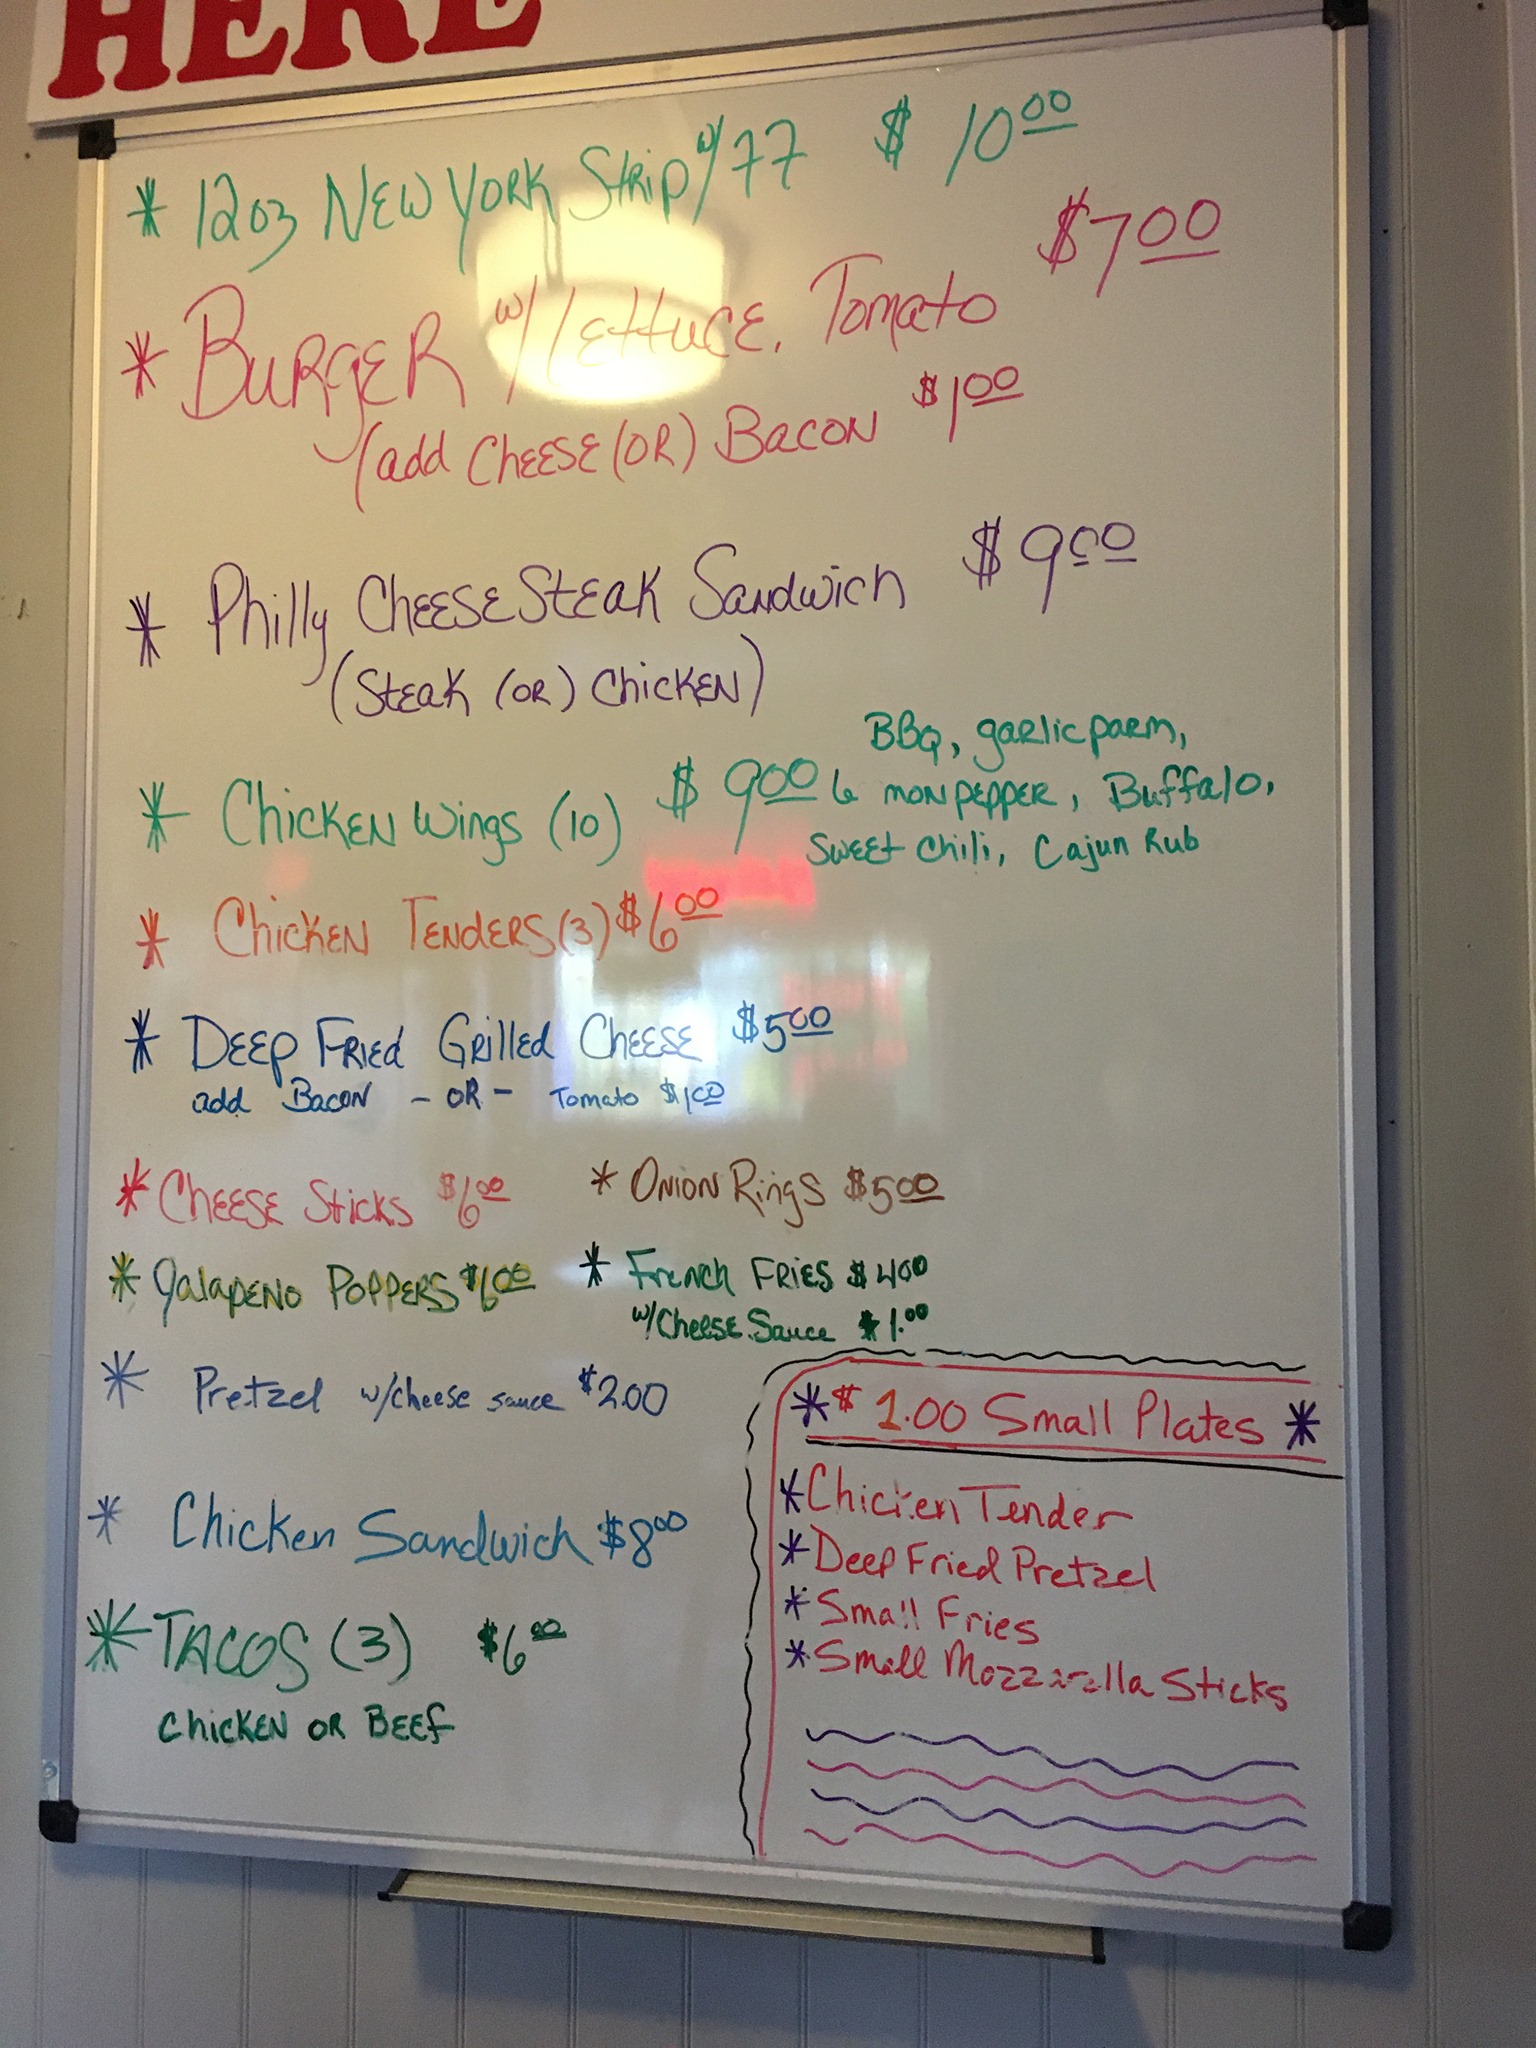 HERE
* 12oz NEW YORK Strip w/ 77 $ 10.00
* BURGER w/ LETTUCE, Tomato $7.00
(add CHEESE (OR) BACON $1.00
* Philly CHEESESTEAK Sandwich $9.00
(STEAK (OR) CHICKEN)
BBQ, garlic parm,
* CHICKEN Wings (10) $9.00 lemon pepper, Buffalo,
Sweet Chili, Cajun Rub
* CHICKEN TENDERS (3) $6.00
* DEEP FRIED GRILLED CHEESE $5.00
add BACON - OR - Tomato $1.00
* CHEESE STICKS $6.00 * ONION Rings $5.00
* JALAPENO POPPERS $6.00 * French FRIES $4.00
w/CHEESE Sauce $1.00
* Pretzel w/cheese sauce $2.00
* $ 1.00 Small Plates *
* Chicken Tender
* Chicken Sandwich $8.00
* Deep Fried Pretzel
* Small Fries
* TACOS (3) $6.00
* Small Mozzarella Sticks
CHICKEN OR BEEF